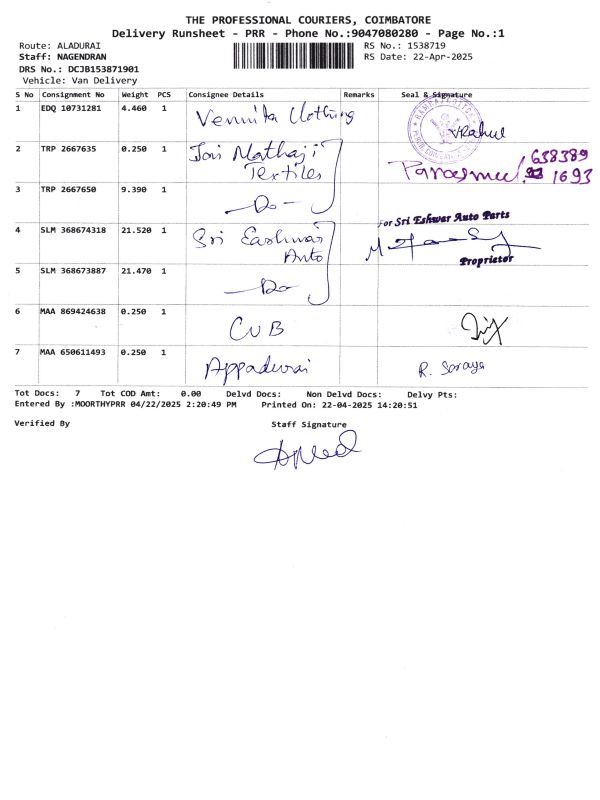 THE PROFESSIONAL COURIERS, COIMBATORE
Delivery Runsheet - PRR - Phone No.:9047080280 - Page No.:1
Route: ALADURAI RS No.: 1538719
Staff: NAGENDRAN RS Date: 22-Apr-2025
DRS No.: DCJB153871901
Vehicle: Van Delivery
S No Consignment No Weight PCS Consignee Details Remarks Seal & Signature
1 EDQ 10731281 4.460 1 Vennila Clothing VRahul
2 TRP 2667635 0.250 1 Jai Mathaji
Textiles
638389
1693
3 TRP 2667650 9.390 1 -Do-
For Sri Eshwar Auto Parts
4 SLM 368674318 21.520 1 Sri Eashwar
Auto
Proprietor
5 SLM 368673887 21.470 1 -Do-
6 MAA 869424638 0.250 1 CUB
7 MAA 650611493 0.250 1 Appadurai R. Soraya
Tot Docs: 7 Tot COD Amt: 0.00 Delvd Docs: Non Delvd Docs: Delvy Pts:
Entered By :MOORTHYPRR 04/22/2025 2:20:49 PM Printed On: 22-04-2025 14:20:51
Verified By Staff Signature